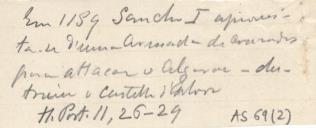 Em 1189 Sancho I aprovei-
ta-se d'uma Armada de cruzados
para attacar o Algarve - des-
truiu o Castello d'Alvor
H. Port. II, 26-29
AS 69(2)